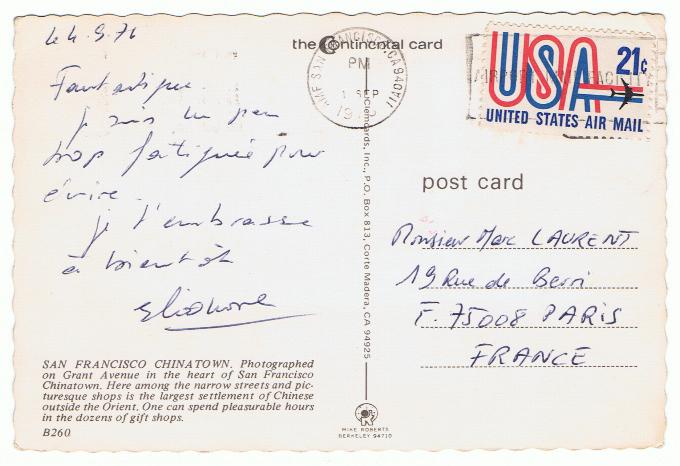 the Continental card
Fantastique.
je suis un peu
trop fatiguée pour
écrire.
je t'embrasse
à bientôt
SAN FRANCISCO CHINATOWN. Photographed
on Grant Avenue in the heart of San Francisco
Chinatown. Here among the narrow streets and pic-
turesque shops is the largest settlement of Chinese
outside the Orient. One can spend pleasurable hours
in the dozens of gift shops.
B260
Clemcards, Inc., P.O. Box 813, Corte Madera, CA 94925
MIKE ROBERTS
BERKELEY 94710
AMF SAN FRANCISCO, CA
PM
1 SEP
USA 21¢
UNITED STATES AIR MAIL
post card
Monsieur Marc LAURENT
19 Rue de Berri
F. 75008 PARIS
FRANCE